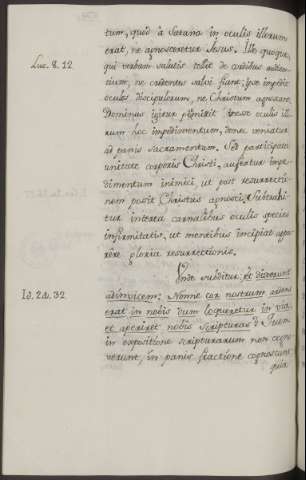 tum, quod à Satana in oculis illorum
erat, ne agnosceretur Jesus. Ille quoque,
Luc. 8. 12.
qui verbum salutis tollit de cordibus audien-
tium, ne credentes salvi fiant; ipse impedit
oculos discipulorum, ne Christum agnoscant.
Dominus igitur permisit inesse oculis illo-
rum hoc impedimentum, donec veniatur
ad panis Sacramentum. Sed participata
unitate corporis Christi, aufertur impe-
dimentum inimici, ut post resurrectio
nem possit Christus agnosci. Subtrahi-
tur intrea carnalibus oculis species
infirmitatis, ut mentibus incipiat appa-
rere gloria resurrectionis.
Unde subditur: et dixerunt
Id. 24. 32.
adinvicem: Nonne cor nostrum ardens
erat in nobis dum loqueretur in via,
et aperiret nobis scripturas? Quem
in expositione scripturarum non cogno
verunt, in panis fractione cognoscunt
quia